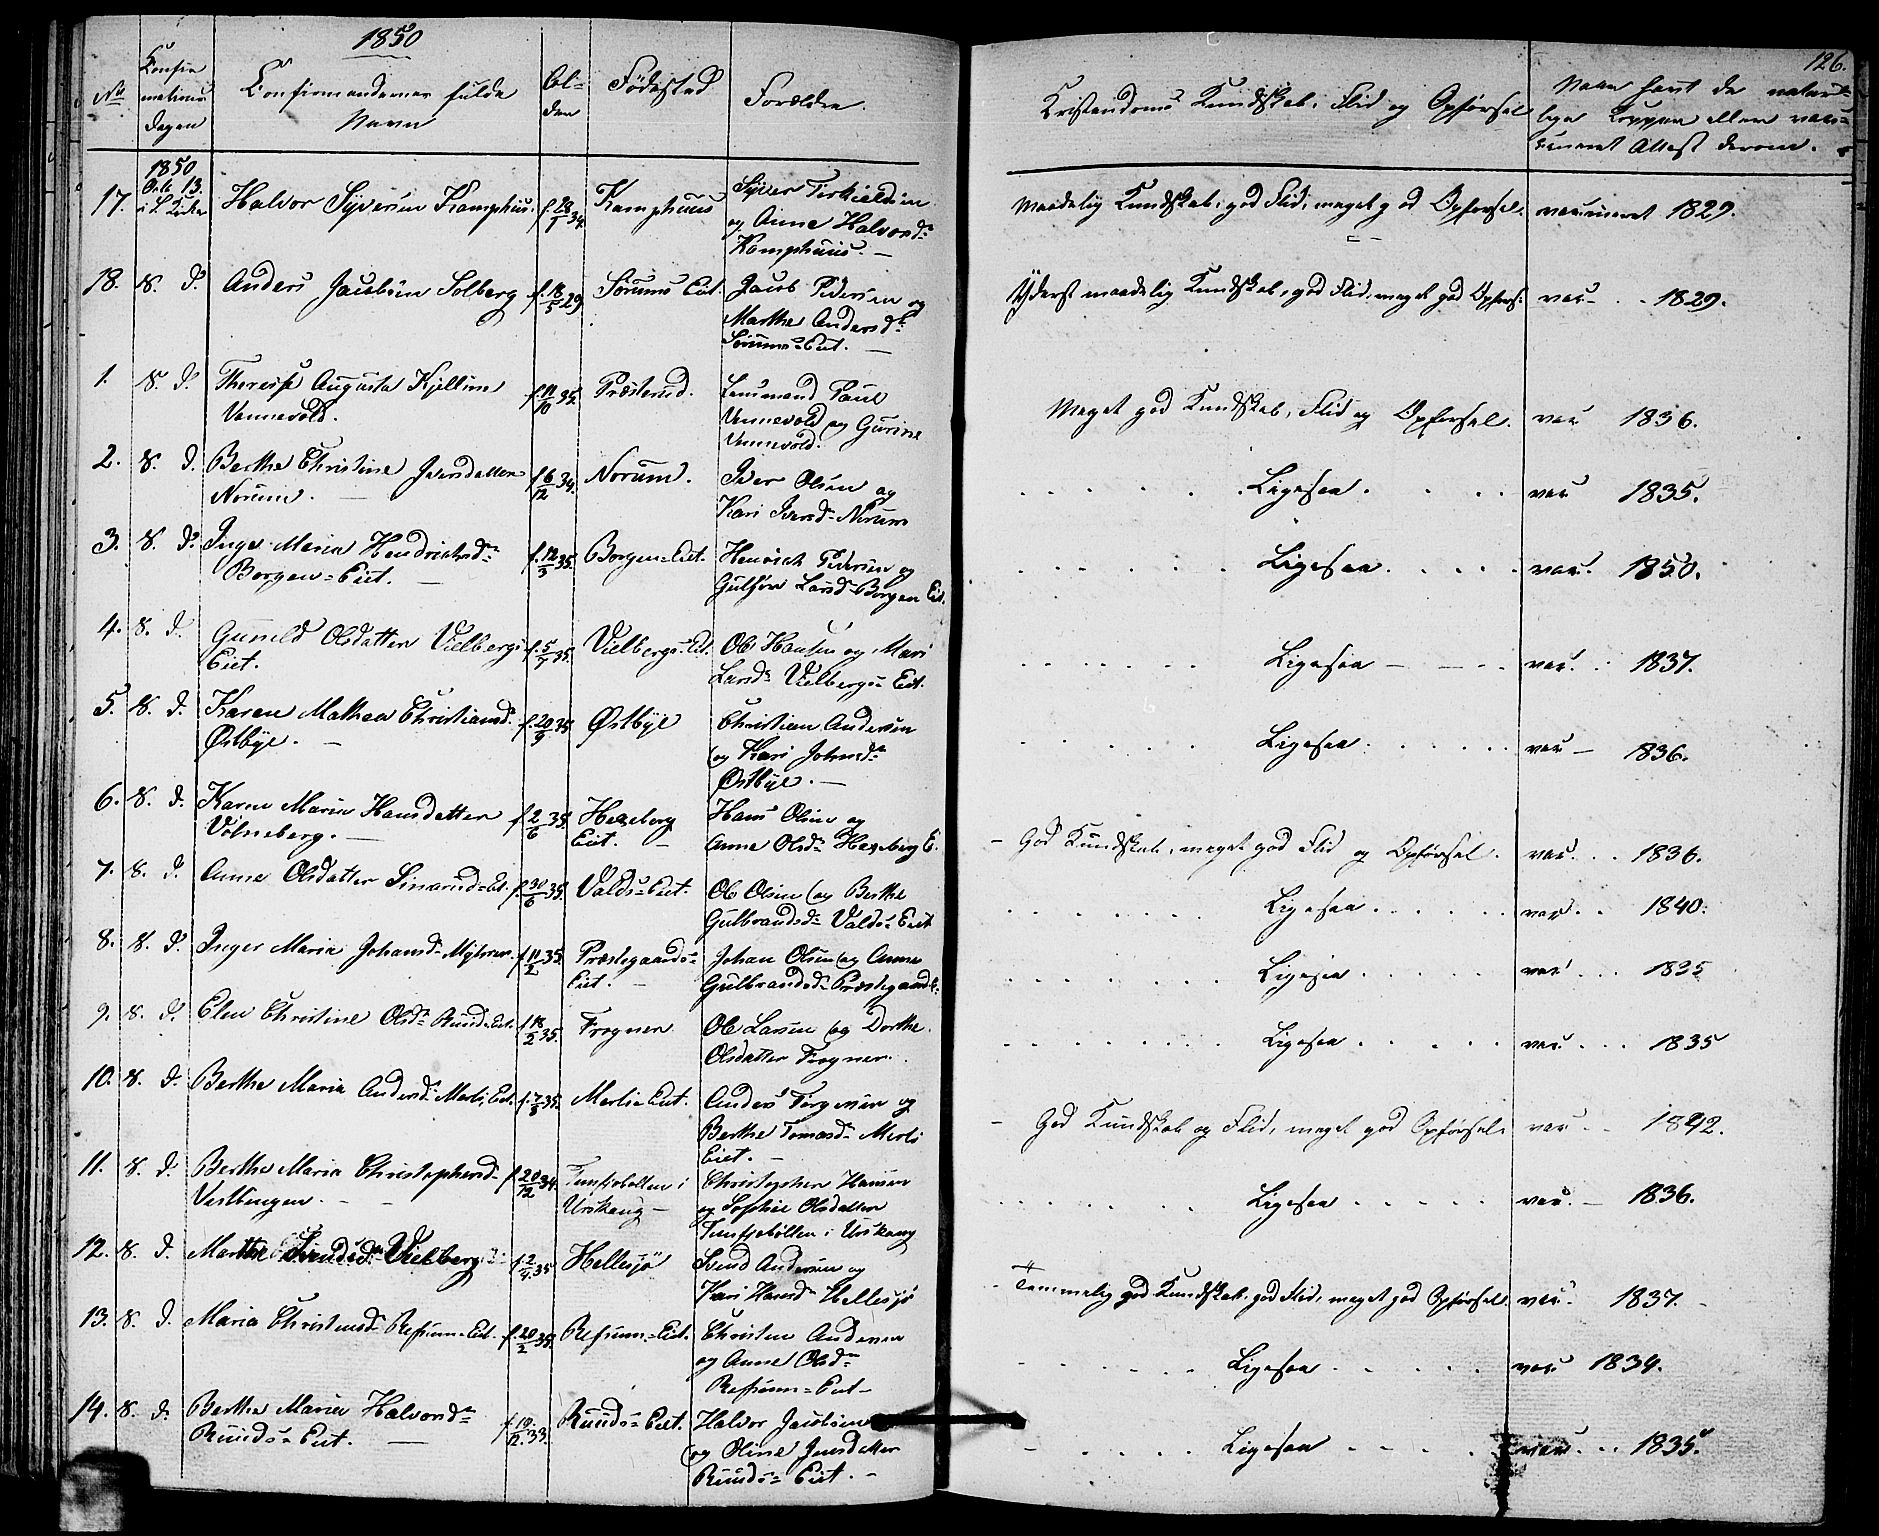 1850
126.
No
Confir
mations
Dagen
Confirmandernes fulde
Navn
Al-
der
Fødested
Forældre.
Kristendoms Kundskab, Flid og Opførsel
Naar havt de natur-
lige Kopper eller vac-
cineret Attest derom.
1850
Octb 13.
17. Halvor Syversen Kamphuus. f. 28/1 34. Kamphuus Syver Terkieldsen
og Anne Halvorsd.
Kamphuus. —
Maadelig Kundskab, god Flid, meget god Opførsel. vaccineret 1829.
18. S. D. Anders Jacobsen Solberg f. 18/5 29 Sørums Eiet. Jacob Pedersen og
Marthe Andersd.
Sørums=Eiet. —
Yderst maadelig Kundskab, god Flid, meget god Opførs: vac - . . 1829.
1. S. D. Therese Augusta Kjelline f. 11/10 35. Præsterud. Lensmand Paul
Vennevold. Vennevold og Gurine
Vennevold.
Meget god Kundskab, Flid og Opførsel. vac 1836.
2. S. D. Berthe Christine Iversdatter f. 6/12 34. Norum. Iver Olsen og
Norum. — Kari Iversd. Norum
Ligesaa. vac 1835.
3. S. D. Inger Maria Hendrichsd. f. 12/3 35. Borgen=Eiet. Henrich Pedersen og
Borgen=Eiet. — Gulføn Larsd. Borgen Eit.
Ligesaa. vac. 1850.
4. S. D. Gunild Olsdatter Vielbergs f. 5/7 35. Vielbergs-Eiet. Ole Hansen og Mari
Eiet. Larsd. Vielbergs-Eiet.
Ligesaa vac. 1837.
5. S. D. Karen Mathea Christiansd. f. 20/9 35 Østbye Christian Andersen
Østbye. — og Kari Johnsd.
Østbye. —
Ligesaa. vac - 1836.
6. S. D. Karen Maria Hansdatter f. 2/6 35. Hexeberg Hans Olsen og
Volneberg. — Eiet. - Anne Olsd. Hexeberg E.
- God Kundskab, meget god Flid og Opførsel. vac. . . 1836.
7. S. D. Anne Olsdatter f. 30/6 35. Valds=Eiet. Ole Olsen og Berthe
Gulbrandsd. Valds=Eiet
Ligesaa vac. . . 1840.
8. S. D. Inger Maria Johansd. f. 11/2 35. Præstegaards- Johan Olsen og Anne
Eiet. - Gulbrandsd. Præstegaards E.
Ligesaa vac. . . 1835
9. S. D. Elen Christine Olsd. Ruud=Eiet. f. 18/2 35. Frogner Ole Larsen og Dorthe
Olsdatter Frogner.
Ligesaa vac. . . 1835
10. S. D. Berthe Maria Andersd. Merli Eiet. f. 7/3 35. Merli=Eiet. Anders Torgersen og
Berthe Tomasd. Merli
Eiet. —
- God Kundskab og Flid, meget god Opførsel. vac . . 1842.
11. S. D. Berthe Maria Christophersd. f. 20/12 34. i Christopher Hansen
Vestbyngen. — Urskoug - og Sophie Olsdatter
i Urskoug
Ligesaa vac. - 1836.
12. S. D. Marthe Svendsd. Vielberg f. 2/4 35 Hellesjø Svend Andersen og
Kari Hansd. Hellesjø
- Temmelig god Kundskab, god Flid, meget god Opførsel. vac. 1837.
13. S. D. Maria Christensd. Refsum=Eiet. f. 20/2 35. Refsum=Eiet. Christen Andersen
og Anne Olsd.
Refsum=Eiet -
Ligesaa vac 1834.
14. S. D. Berthe Maria Halvorsd. f. 19/12 33. Ruuds=Eiet. Halvor Jacobsen
Ruuds=Eiet. — og Oline Jensdatter
Ruuds=Eiet. -
Ligesaa vac. . . 1835.